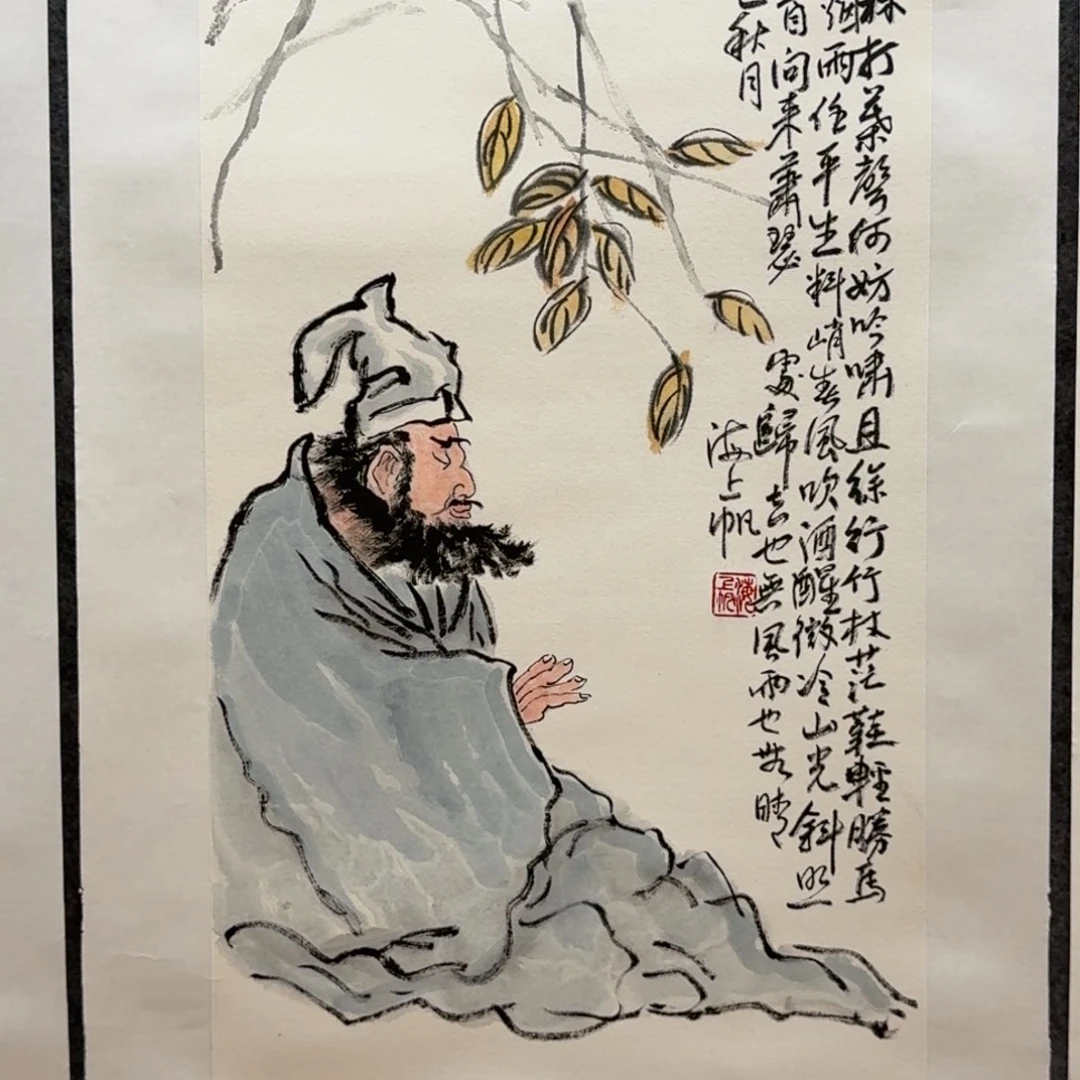 林打葉聲何妨吟嘯且徐行竹杖茫鞋輕勝馬
烟雨任平生料峭春風吹酒醒微冷山光斜照
首向來蕭瑟處歸去也無風雨也無晴
秋月
海上帆